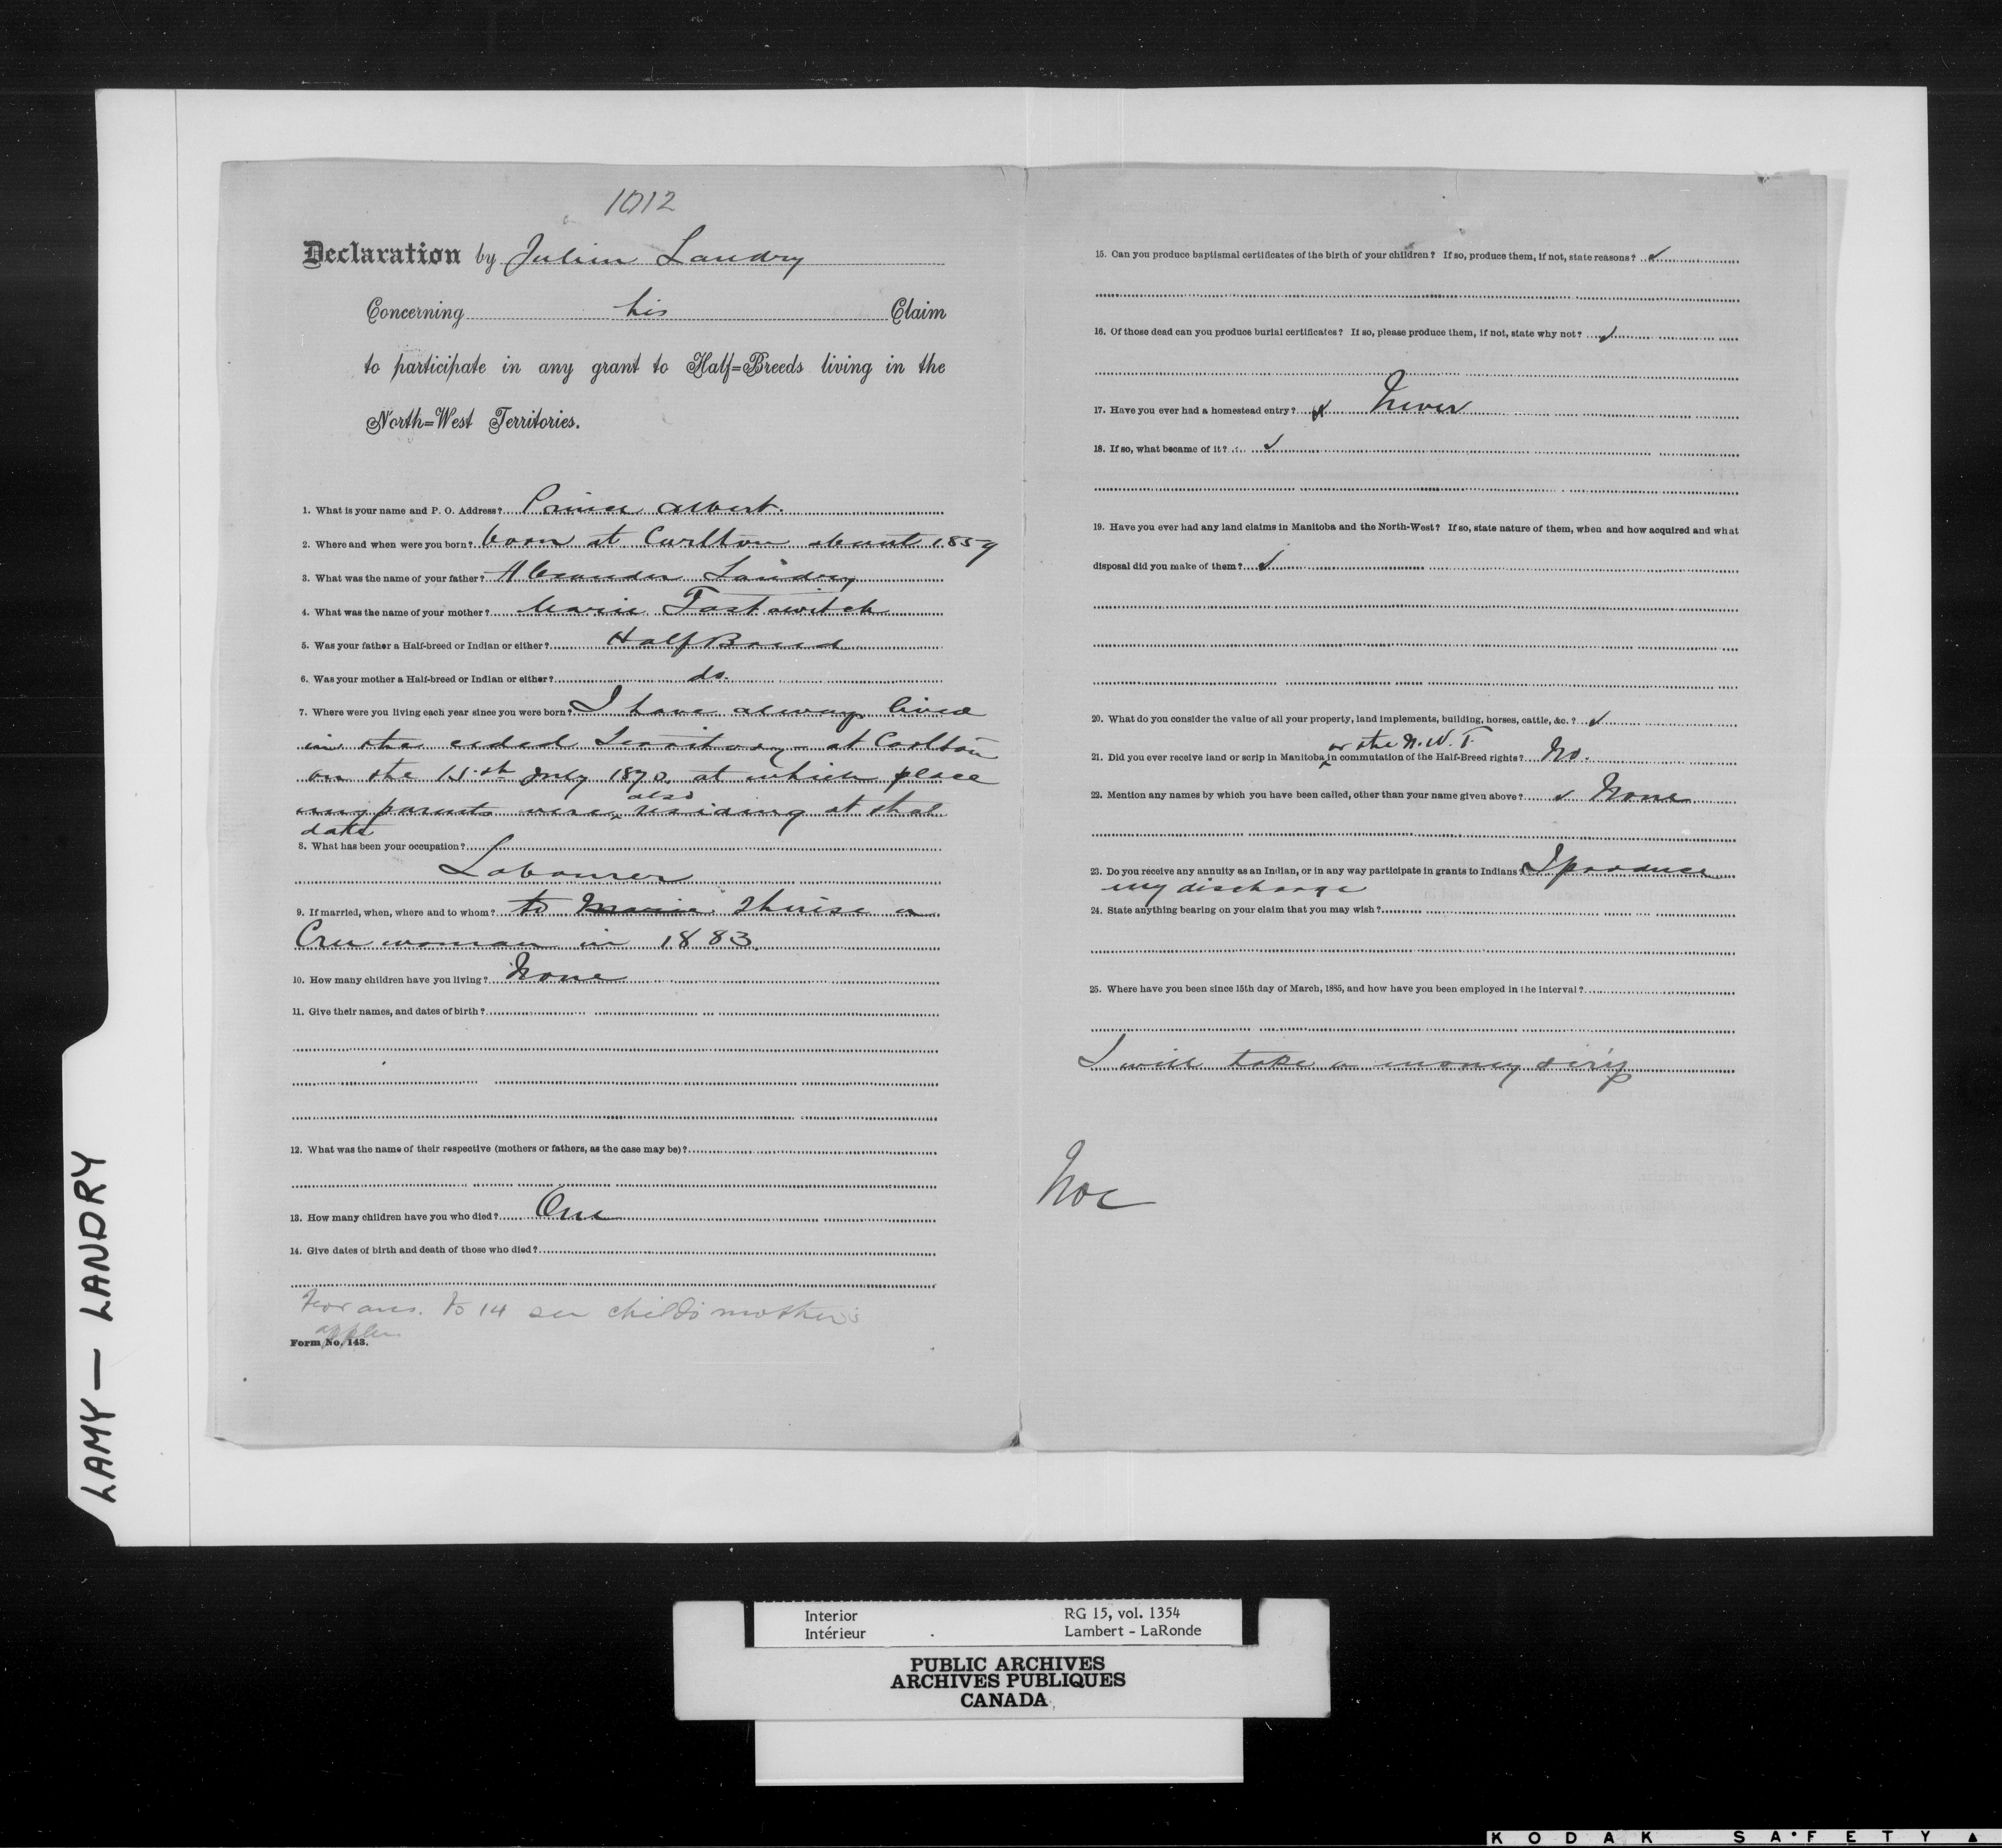 1012
Declaration by Julien Landry
Concerning his Claim
to participate in any grant to Half=Breeds living in the
North=West Territories.
1. What is your name and P. O. Address? Prince Albert.
2. Where and when were you born? born at Carlton about 1859
3. What was the name of your father? Alexander Landry
4. What was the name of your mother? Marie Tastawitch
5. Was your father a Half-breed or Indian or either? Half Breed
6. Was your mother a Half-breed or Indian or either? do.
7. Where were you living each year since you were born? I have always lived
in the ceded Territory - at Carlton
on the 15th July 1870 at which place
my parents were also residing at that
date
8. What has been your occupation?
Labourer
9. If married, when, where and to whom? to Marie Therese a
Cree woman in 1883.
10. How many children have you living? None
11. Give their names, and dates of birth?
12. What was the name of their respective (mothers or fathers, as the case may be)?
13. How many children have you who died? One
14. Give dates of birth and death of those who died?
For ans. to 14 see child's mother's
appln.
Form No. 143.
15. Can you produce baptismal certificates of the birth of your children? If so, produce them, if not, state reasons? ✓
16. Of those dead can you produce burial certificates? If so, please produce them, if not, state why not? ✓
17. Have you ever had a homestead entry? Never
18. If so, what became of it? ✓
19. Have you ever had any land claims in Manitoba and the North-West? If so, state nature of them, when and how acquired and what
disposal did you make of them? ✓
20. What do you consider the value of all your property, land implements, building, horses, cattle, &c.? ✓
or the N.W.T.
21. Did you ever receive land or scrip in Manitoba in commutation of the Half-Breed rights? No.
22. Mention any names by which you have been called, other than your name given above? ✓ None
23. Do you receive any annuity as an Indian, or in any way participate in grants to Indians? I produce
my discharge
24. State anything bearing on your claim that you may wish?
25. Where have you been since 15th day of March, 1885, and how have you been employed in the interval?
I will take a money scrip
LAMY — LANDRY
Interior RG 15, vol. 1354
Intérieur Lambert - LaRonde
PUBLIC ARCHIVES
ARCHIVES PUBLIQUES
CANADA
KODAK SAFETY